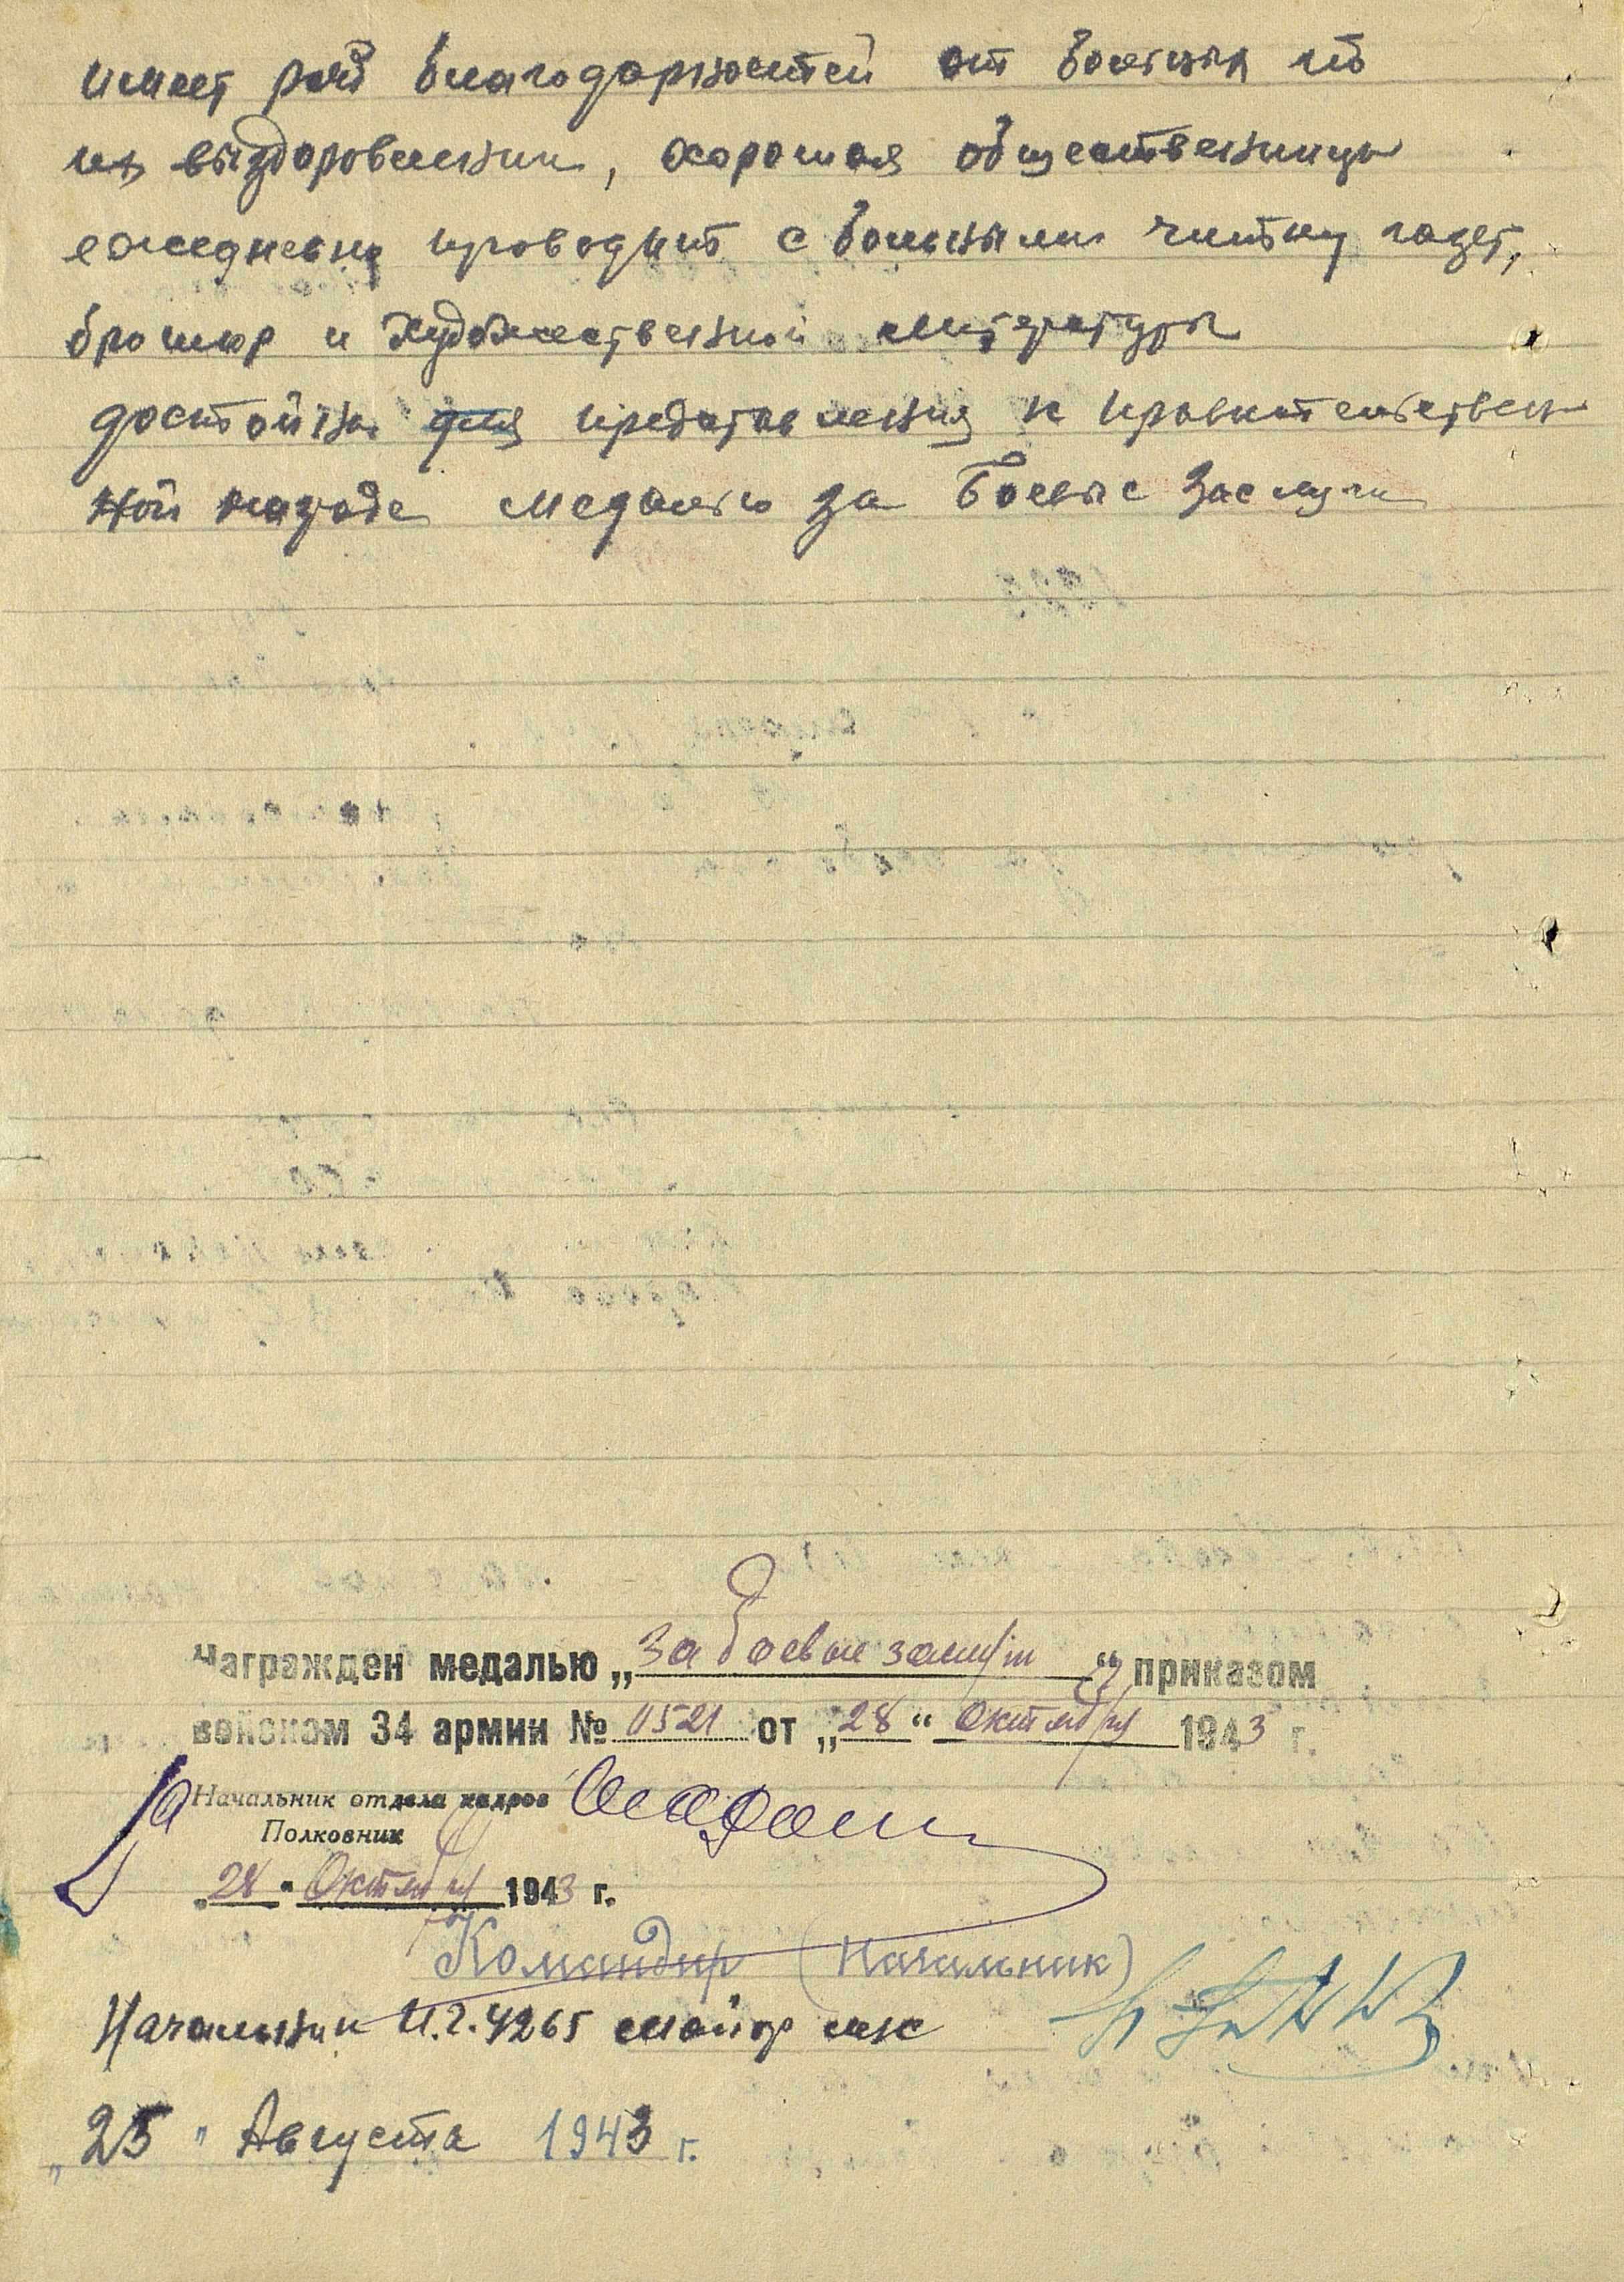 имеет ряд благодарностей от больных по
их выздоровлении, хорошая общественница
ежедневно проводит с больными читку газет,
брошюр и художественной литературы
достойна для представления к правительствен
ной награде медалью за Боевые Заслуги
Награжден медалью „За боевые заслуги“ приказом
войскам 34 армии № 0521 от „28“ октября 1943 г.
Начальник отдела кадров
Полковник
„28“ Октября 1943 г.
Командир (Начальник)
Начальник И.Г. 4265 майор м/с
„25" Августа 1943 г.